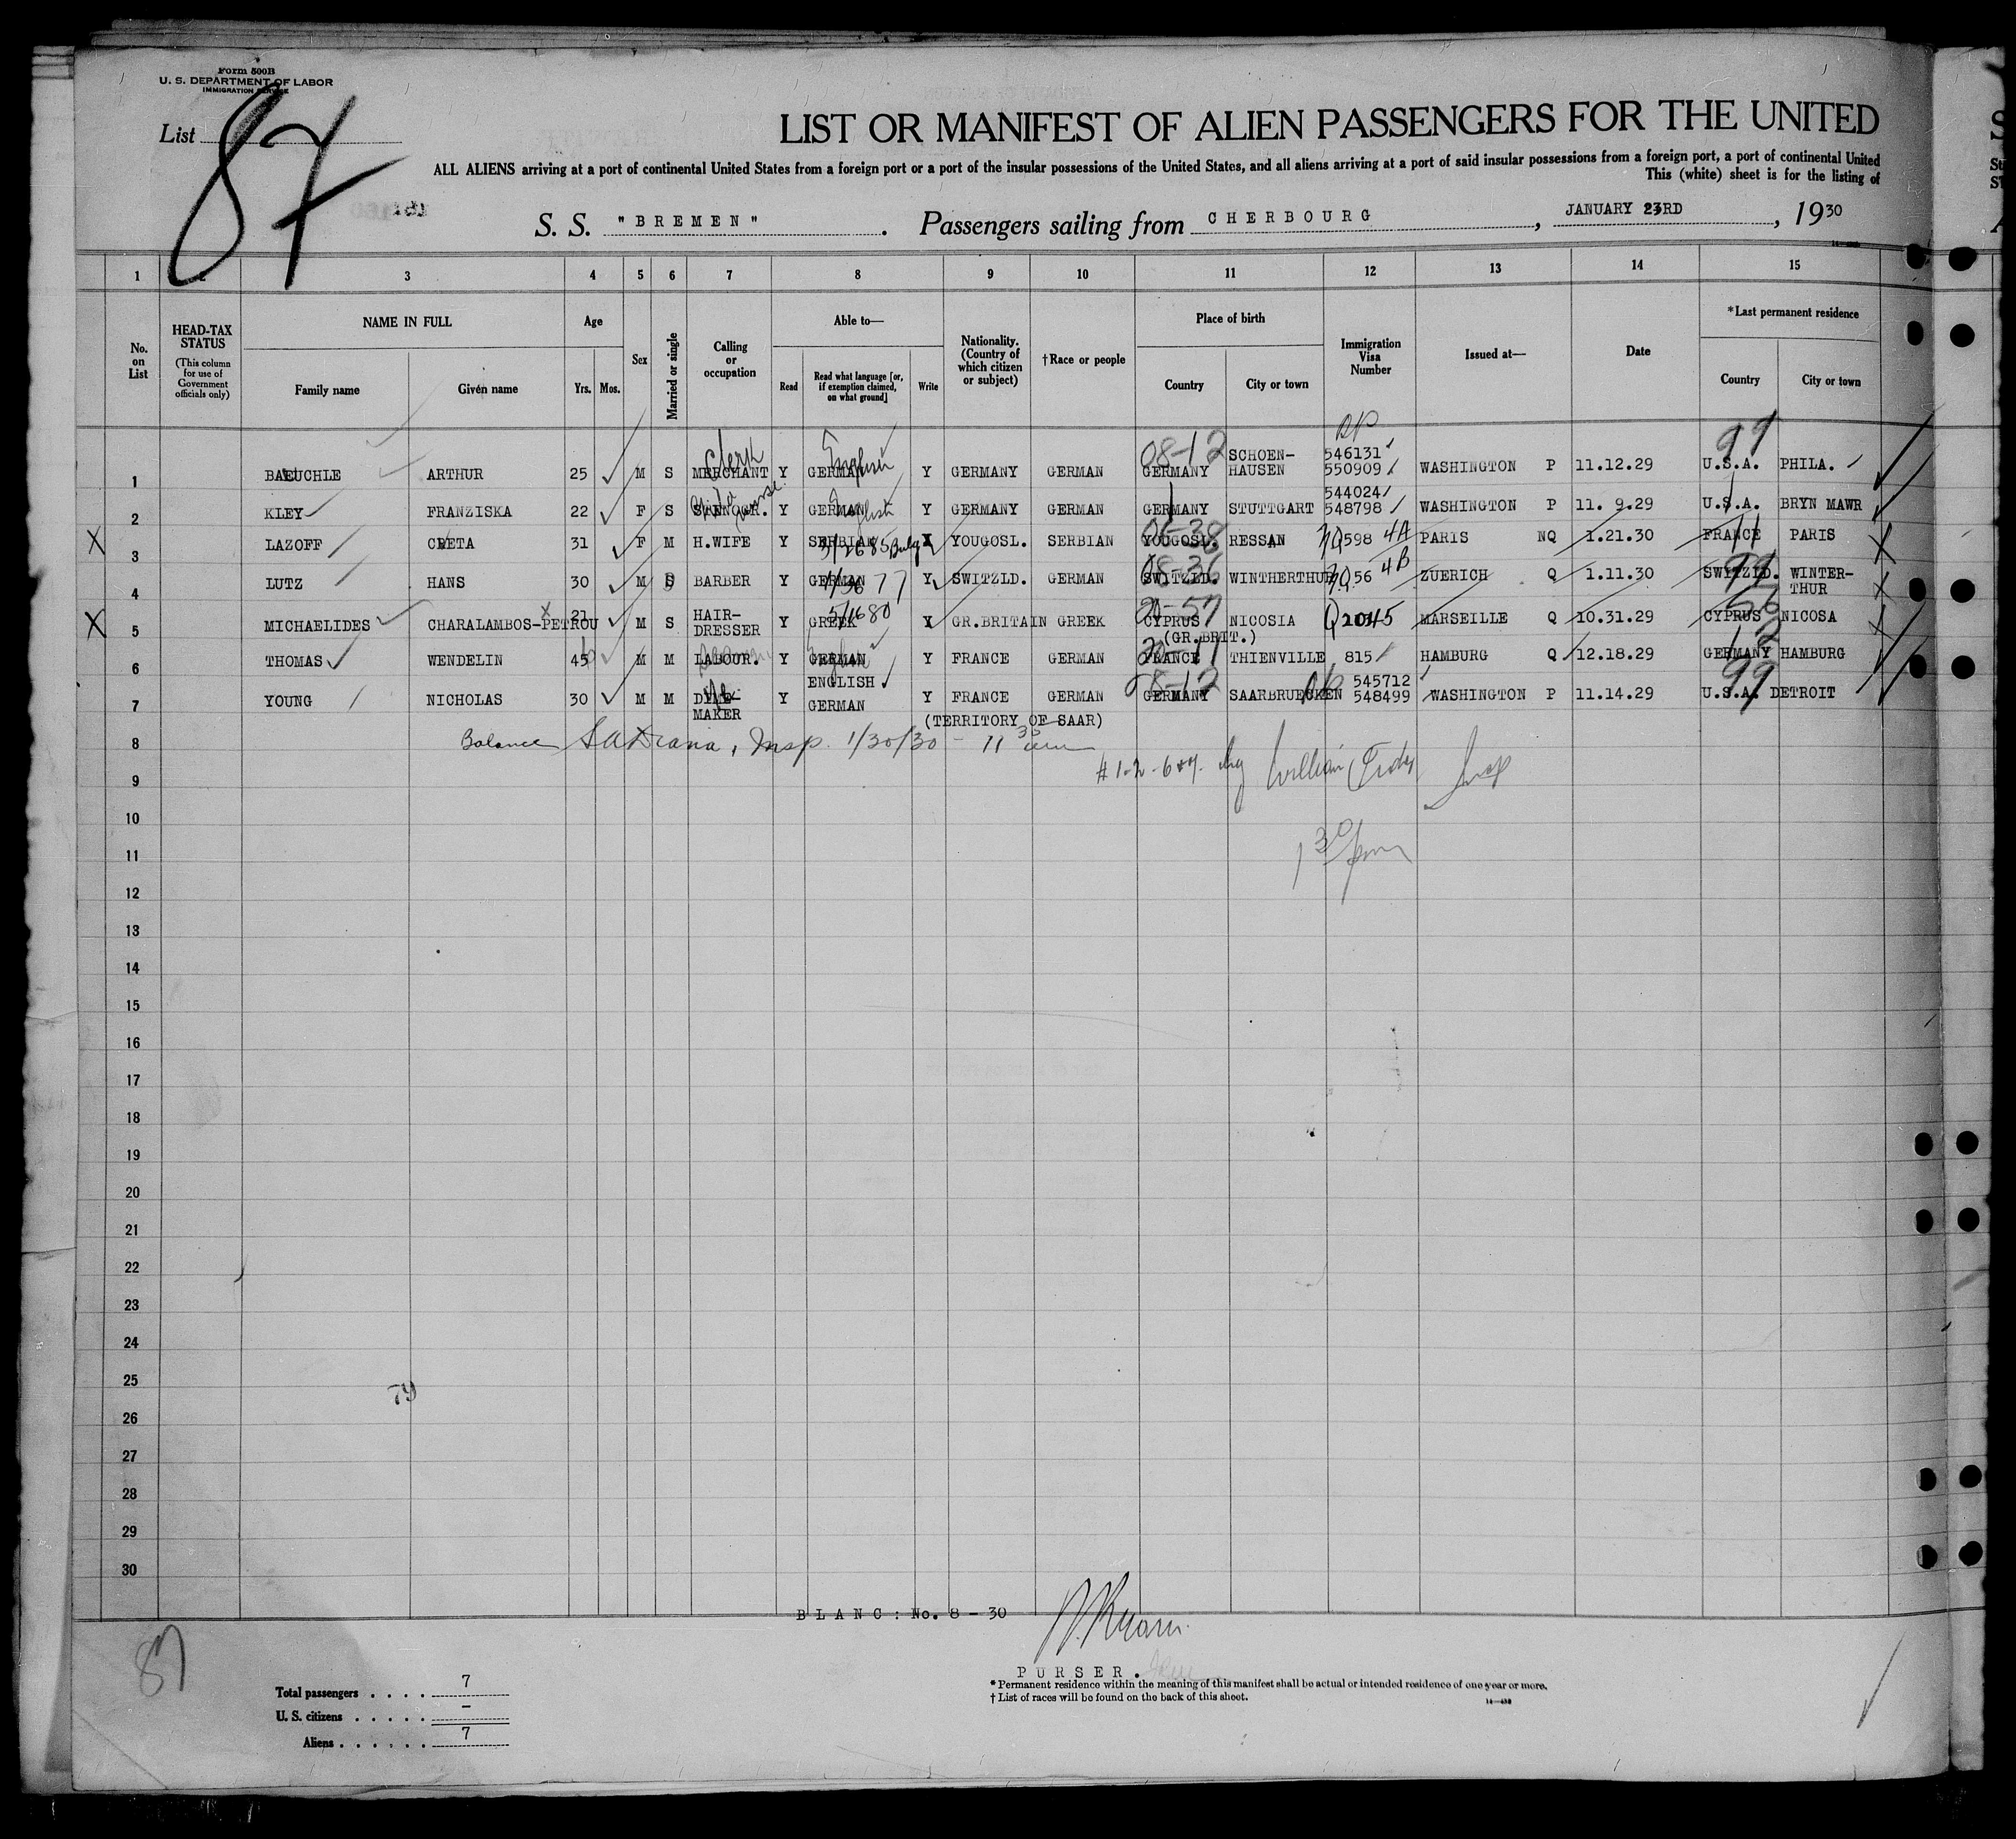 Form 500B
U. S. DEPARTMENT OF LABOR
IMMIGRATION SERVICE
List 87
LIST OR MANIFEST OF ALIEN PASSENGERS FOR THE UNITED
ALL ALIENS arriving at a port of continental United States from a foreign port or a port of the insular possessions of the United States, and all aliens arriving at a port of said insular possessions from a foreign port, a port of continental United
This (white) sheet is for the listing of
S. S. "BREMEN". Passengers sailing from CHERBOURG, JANUARY 23RD, 1930
1 3 4 5 6 7 8 9 10 11 12 13 14 15
No. on List
HEAD-TAX STATUS (This column for use of Government officials only)
NAME IN FULL Family name Given name
Age Yrs. Mos.
Sex
Married or single
Calling or occupation
Able to— Read Read what language [or, if exemption claimed, on what ground] Write
Nationality. (Country of which citizen or subject)
†Race or people
Place of birth Country City or town
Immigration Visa Number
Issued at—
Date
*Last permanent residence Country City or town
1 BAEUCHLE ARTHUR 25 M S MERCHANT Clerk Y GERMAN English Y GERMANY GERMAN 08-12 GERMANY SCHOEN-HAUSEN 546131 550909 WASHINGTON P 11.12.29 99 U.S.A. PHILA.
2 KLEY FRANZISKA 22 F S Y GERMAN English Y GERMANY GERMAN GERMANY STUTTGART 544024 548798 WASHINGTON P 11. 9.29 U.S.A. BRYN MAWR
X 3 LAZOFF CRETA 31 F M H.WIFE Y SERBIAN Y YOUGOSL. SERBIAN YOUGOSL. RESSAN NQ 598 4A PARIS NQ 1.21.30 11 FRANCE PARIS X
4 LUTZ HANS 30 M S BARBER Y GERMAN Y SWITZLD. GERMAN 08-36 SWITZLD. WINTHERTHUR 56 4B ZUERICH Q 1.11.30 SWITZLD. WINTER-THUR X
X 5 MICHAELIDES CHARALAMBOS-PETROU 21 M S HAIR-DRESSER Y GREEK Y GR.BRITAIN GREEK 20-57 CYPRUS (GR.BRIT.) NICOSIA Q2045 MARSEILLE Q 10.31.29 56 CYPRUS NICOSA X
6 THOMAS WENDELIN 45 M M LABOUR. Y GERMAN Y FRANCE GERMAN FRANCE THIENVILLE 815 HAMBURG Q 12.18.29 12 GERMANY HAMBURG
7 YOUNG NICHOLAS 30 M M MAKER Y ENGLISH GERMAN Y FRANCE GERMAN 8-12 GERMANY SAARBRUECKEN 545712 548499 WASHINGTON P 11.14.29 99 U.S.A. DETROIT
(TERRITORY OF SAAR)
8 Balance Insp. 1/30/30 - 11 35 am
9 # 1-2-6+7. by William Insp
10
11 1 30 pm
12
13
14
15
16
17
18
19
20
21
22
23
24
25 79
26
27
28
29
30
BLANC: No. 8 - 30
PURSER.
87
Total passengers . . . . 7
U. S. citizens . . . . . -
Aliens . . . . . . 7
* Permanent residence within the meaning of this manifest shall be actual or intended residence of one year or more.
† List of races will be found on the back of this sheet.